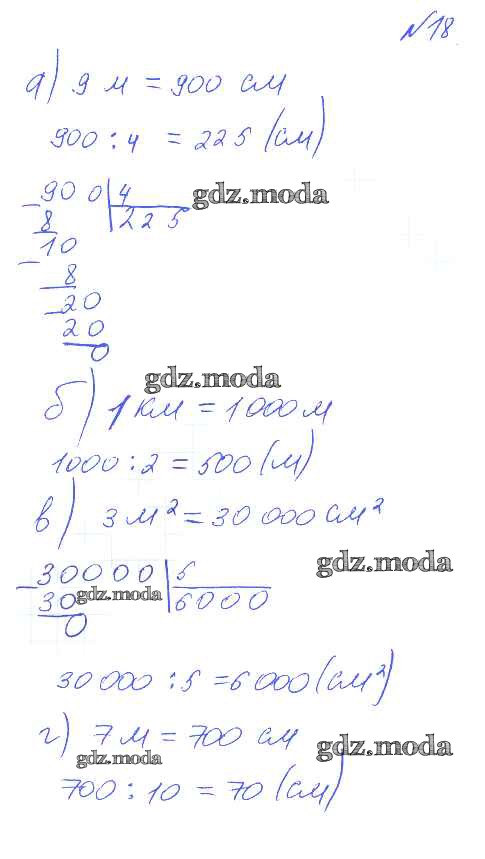 №18
а) 9 м = 900 см
900 : 4 = 225 (см)
900 4
gdz.moda
8 225
10
8
20
20
0
gdz.moda
б) 1 км = 1000 м
1000 : 2 = 500 (м)
в) 3 м² = 30 000 см²
gdz.moda
30000 5
30 6000
gdz.moda
0
30 000 : 5 = 6 000 (см²)
г) 7 м = 700 см
gdz.moda
gdz.moda
700 : 10 = 70 (см)